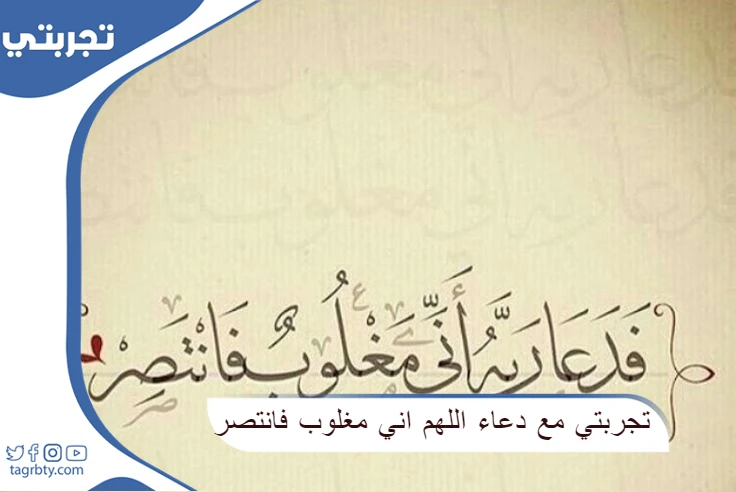 تجربتي
فَدَعَا رَبَّهُ أَنِّي مَغْلُوبٌ فَانْتَصِرْ
تجربتي مع دعاء اللهم اني مغلوب فانتصر
tagrbty.com